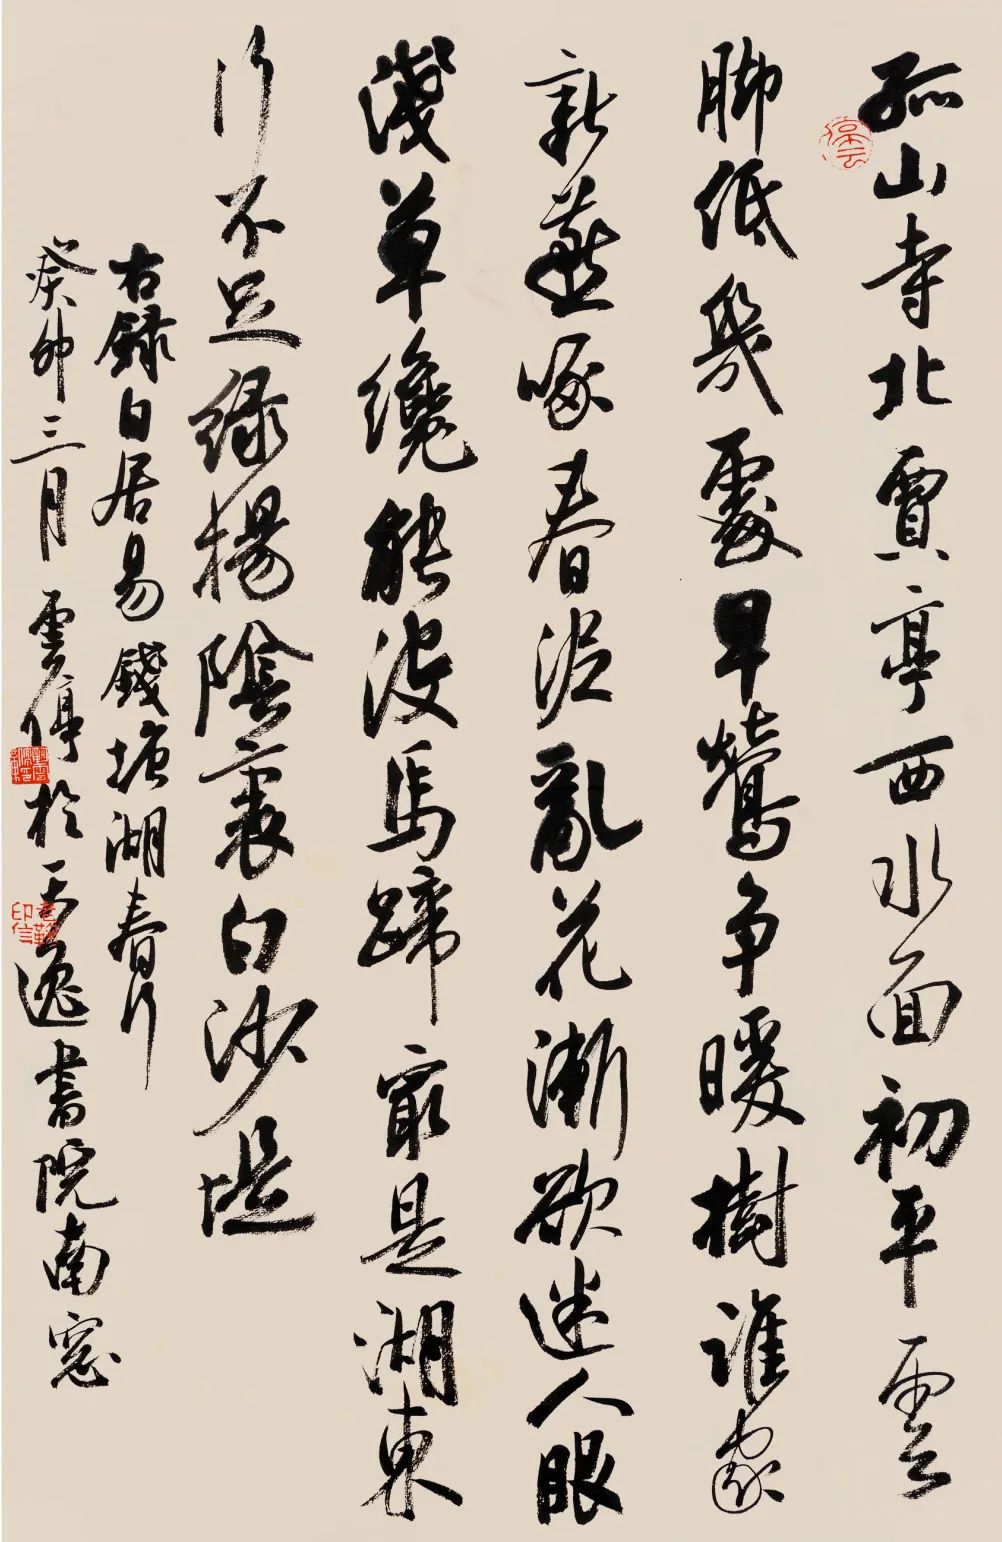 孤山寺北賈亭西水面初平雲
脚低幾處早鶯争暖樹誰家
新燕啄春泥亂花漸欲迷人眼
淺草纔能没馬蹄最是湖東
行不足緑楊陰裏白沙堤
右録白居易錢塘湖春行
癸卯三月雲停於天逸書院南窓
停云